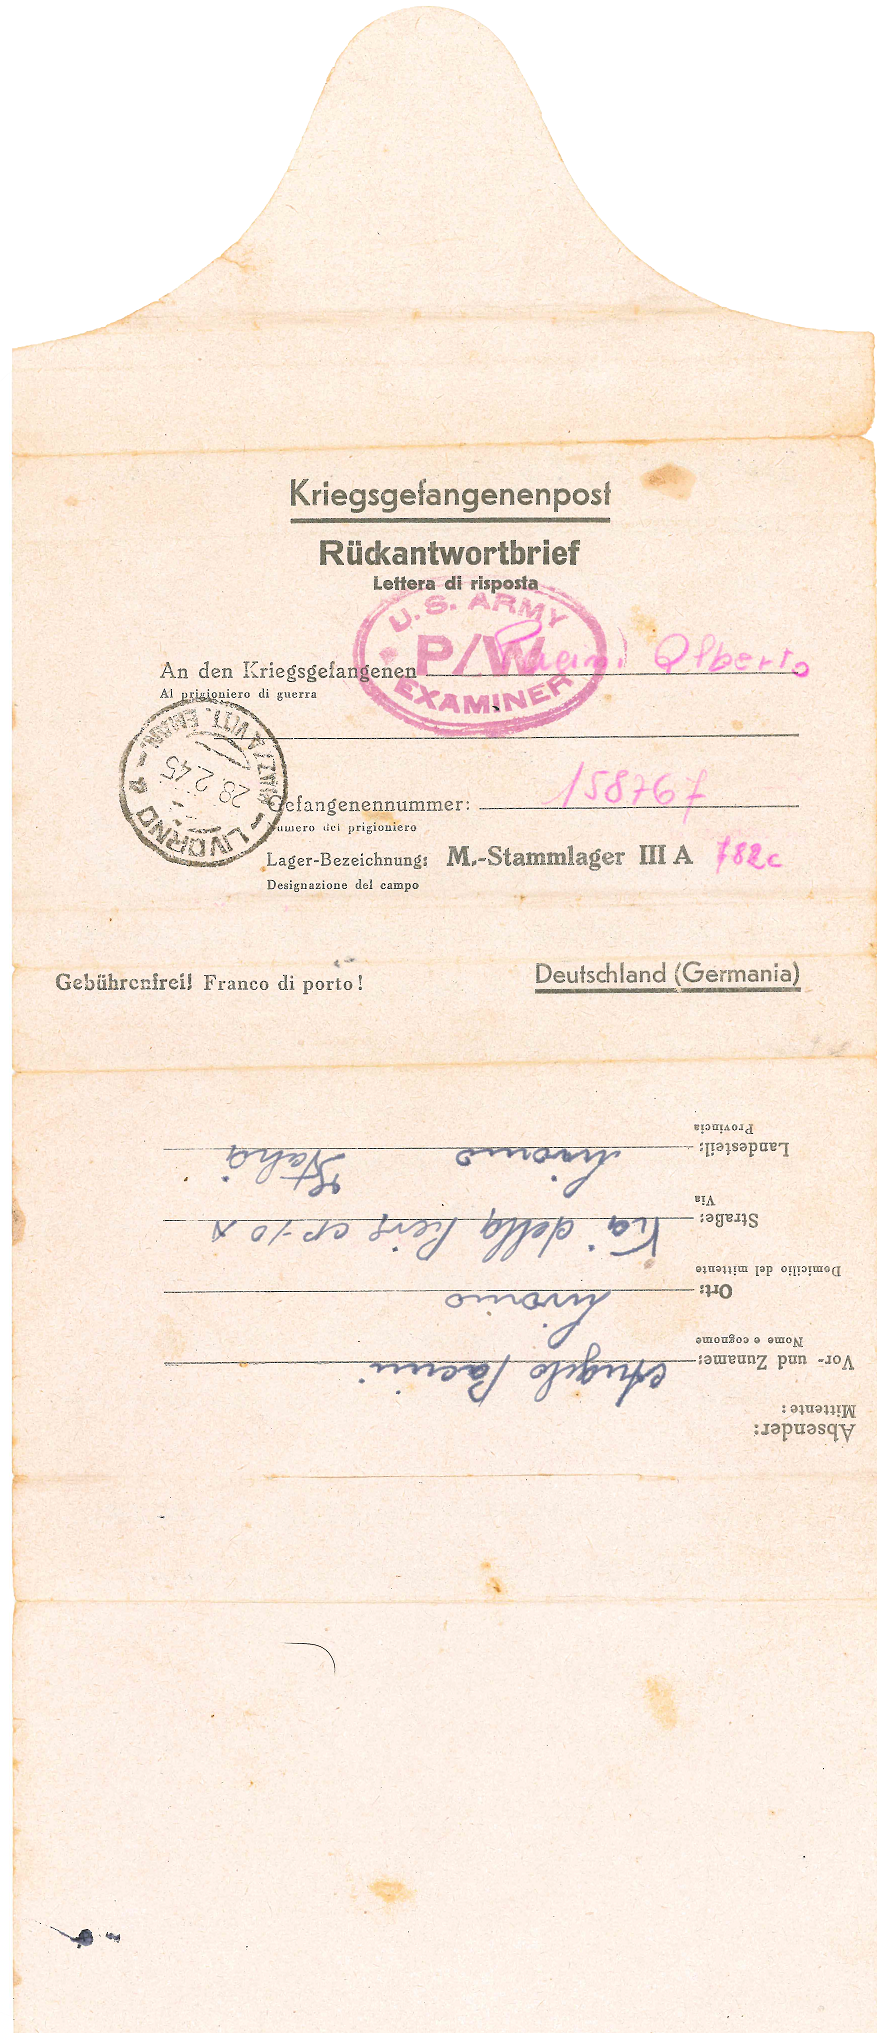 Kriegsgefangenenpost
Rückantwortbrief
Lettera di risposta
U.S. ARMY
P/W
EXAMINER
An den Kriegsgefangenen Pacini Alberto
Al prigioniero di guerra
LIVORNO
PIAZZA VITT. EMAN.
28.2.45
Gefangenennummer: 158767
Numero del prigioniero
Lager-Bezeichnung: M.-Stammlager III A 782c
Designazione del campo
Gebührenfrei! Franco di porto!
Deutschland (Germania)
Absender:
Mittente:
Vor- und Zuname: Angelo Pacini
Nome e cognome
Ort: Livorno
Domicilio del mittente
Straße: Via della
Via
Landesteil: Livorno Italia
Provincia